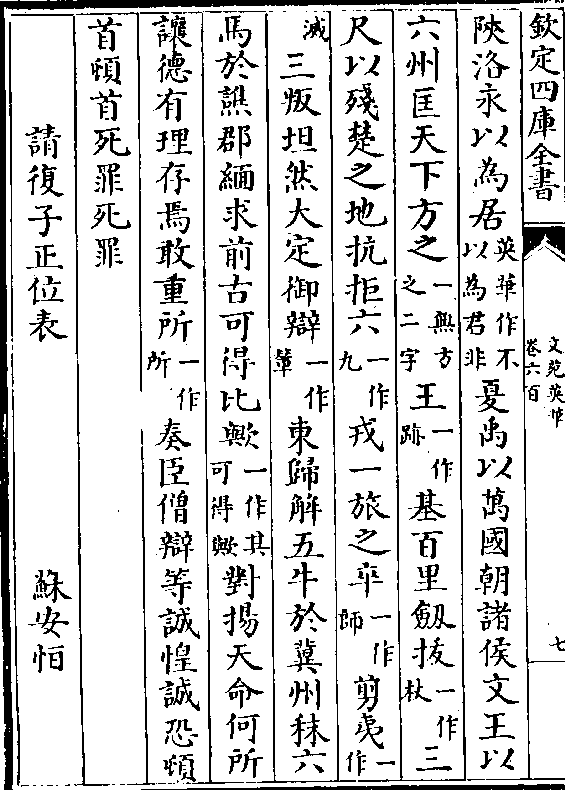 欽定四庫全書
文苑英華
卷六百
七
陜洛永以為居英華作不以為君非夏禹以萬國朝諸侯文王以
六州匡天下方之一無方之二字王一作跡基百里劒拔一作杖三
尺以殘楚之地抗拒六一作九戎一旅之卒一作師剪夷一作
滅三叛坦然大定御辯一作輦東歸解五牛於冀州秣六
馬於譙郡緬求前古可得比歟一作其可得歟對揚天命何所
讓德有理存焉敢重所一作所奏臣僧辯等誠惶誠恐頓
首頓首死罪死罪
請復子正位表 蘇安恒